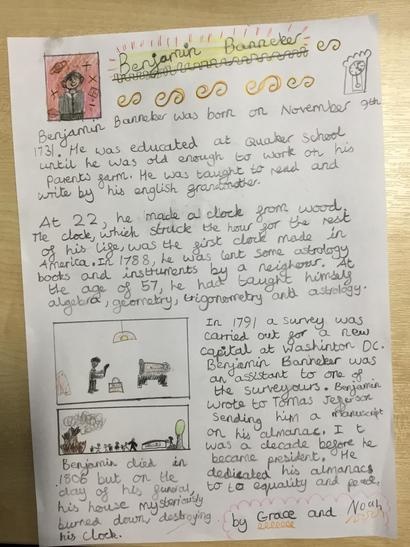 Benjamin Banneker
Benjamin Banneker was born on November 9th
1731. He was educated at Quaker School
until he was old enough to work on his
Parents farm. He was taught to read and
write by his english grandmother.
At 22, he made a clock from wood.
The clock, which struck the hour for the rest
of his life, was the first clock made in
America. In 1788, he was lent some astrology
books and instruments by a neighbour. At
the age of 57, he had taught himself
algebra, geometry, trigonometry and astrology.
In 1791 a survey was
carried out for a new
capital at Washinton DC.
Benjamin Banneker was
an assistant to one of
the surveyours. Benjamin
wrote to Tomas Jeferson
sending him a manuscript
on his almanac. It
was a decade before he
became president. He
dedicated his almanacs
to to equality and peace.
Benjamin died in
1806 but on the
day of his funeral,
his house mysteriously
burned down, destroying
his clock.
by Grace and Noah